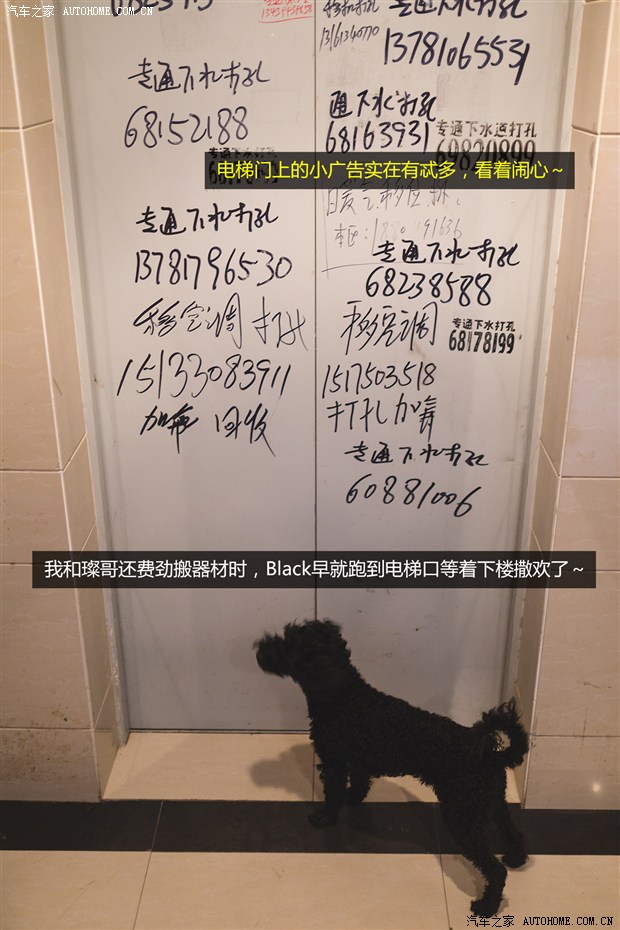 汽车之家 AUTOHOME.COM.CN
13161340770
13781065531
专通下水打孔
68152188
通下水打孔
68163931
专通下水道打孔
69820899
电梯门上的小广告实在有忒多，看着闹心～
专通下水打孔
13781796530
专通下水打孔
68238588
移空调 打孔
15133083911
加氟 回收
移空调
1517503518
打孔加氟
专通下水打孔
68178199
专通下水打孔
60881006
我和璨哥还费劲搬器材时，Black早就跑到电梯口等着下楼撒欢了～
汽车之家 AUTOHOME.COM.CN